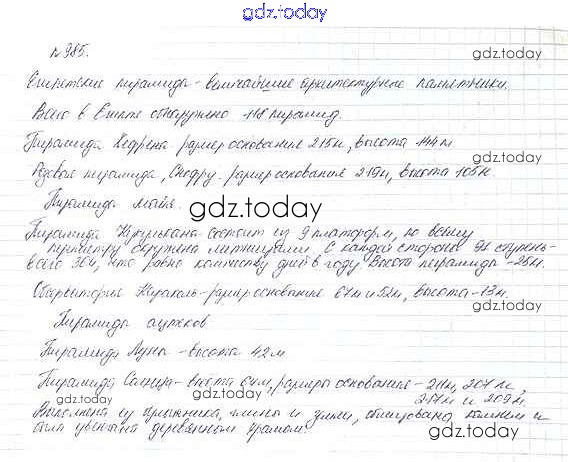 gdz.today
№985.
gdz.today
Египетские пирамиды - величайшие архитектурные памятники.
Всего в Египте обнаружено 118 пирамид.
Пирамида Хефрена - размер основания 215м, высота 144м
gdz.today
Розовая пирамида, Снофру. размер основания 219м, высота 105м.
Пирамиды майя.
gdz.today
Пирамида Кукулькана состоит из 9 платформ, по всему
периметру окружена лестницами. С каждой стороны 91 ступень-
всего 364, что равно количеству дней в году Высота пирамиды - 25м.
Обсерватория Караколь - размер основания 67м и 52м, высота - 13м.
gdz.today
Пирамиды ацтеков
Пирамида Луны - высота 42м
Пирамида Солнца - высота 64м, размеры основания - 211м, 207м,
gdz.today
217м и 209м.
Выполнена из булыжника, глины и земли, облицована камнем и
была увенчана деревянным храмом.
gdz.today